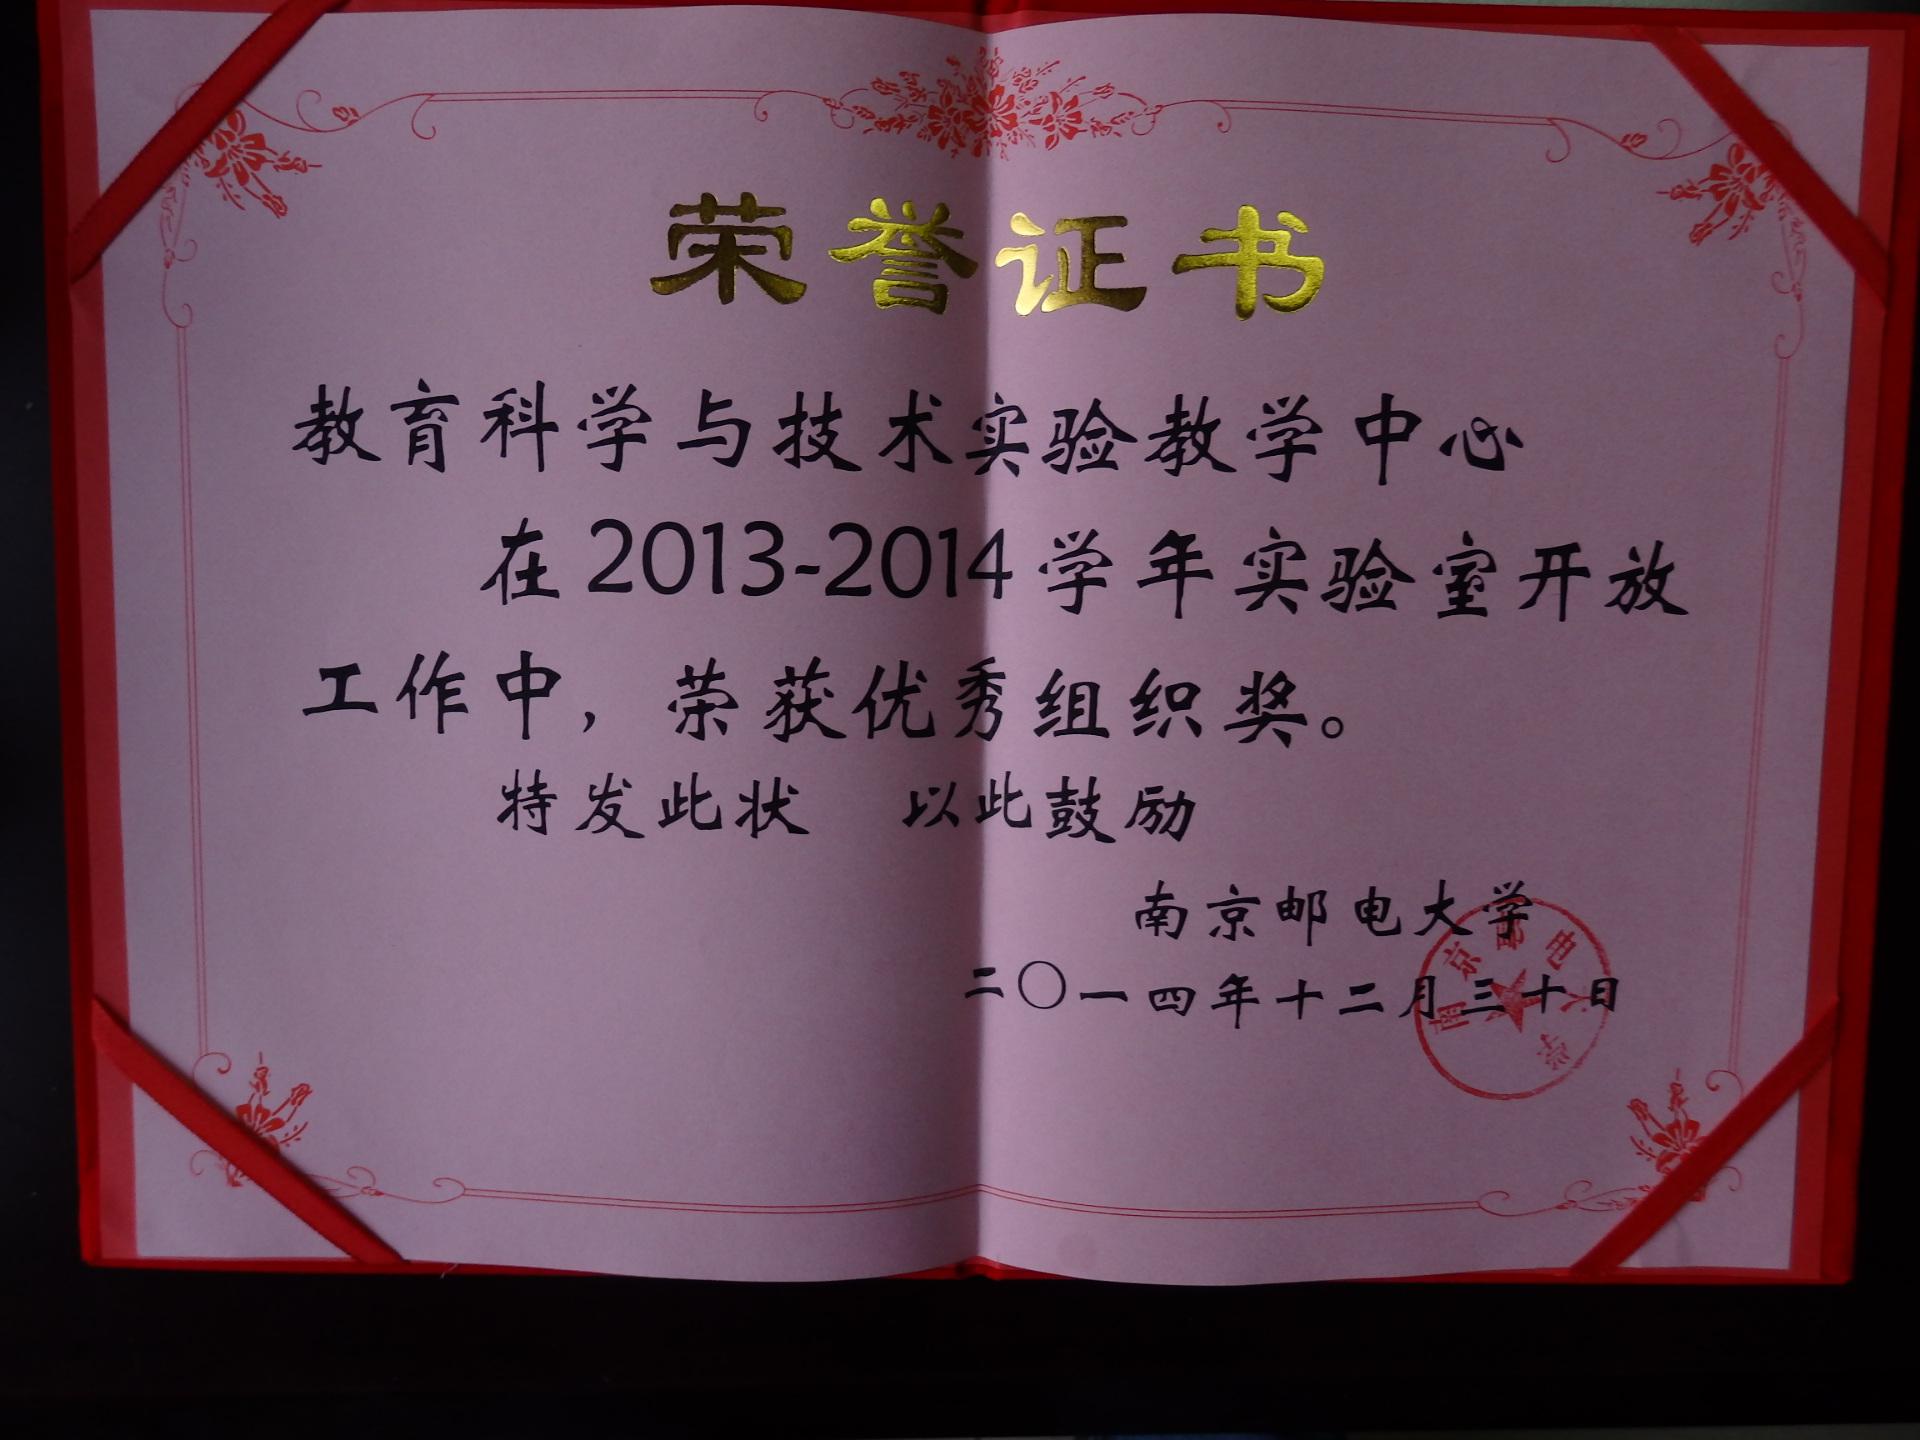 荣誉证书
教育科学与技术实验教学中心
在2013-2014学年实验室开放
工作中，荣获优秀组织奖。
特发此状 以此鼓励
南京邮电大学
二〇一四年十二月三十日
南京邮电大学